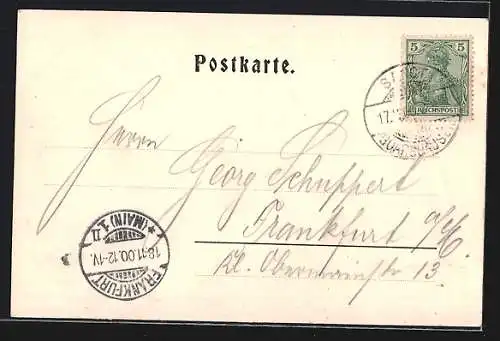 Postkarte.
5 5
REICHSPOST
17.
Herrn
Georg Schuppert
Frankfurt a/M.
Kl. Obermainstr 13.
FRANKFURT
18.11.00.12-1V.
* (MAIN) 1. *